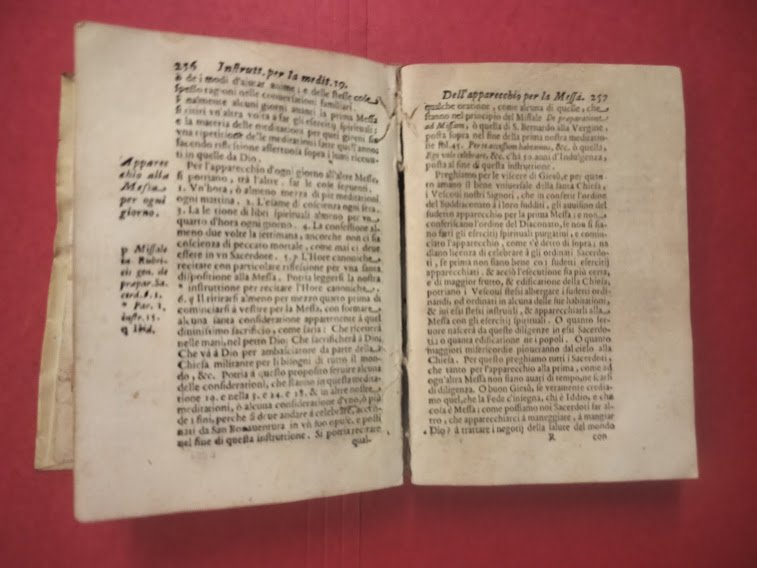 256 Instrutt. per la medit. 19.
ò de i modi d'aiutar anime; e delle stesse cose
spesso ragioni nelle conuersationi familiari.
Finalmente alcuni giorni auanti la prima Messa
si ritiri vn'altra volta à far gli esercitij spirituali;
e la materia delle meditationi per quei giorni sia
vna ripetitione delle meditationi fatte quell'anno
facendo riflessione affettuosa sopra i lumi riceuu-
ti in quelle da Dio.
Apparec
chio alla
Messa
per ogni
giorno.
Per l'apparecchio d'ogni giorno all'altre Messe,
si potranno, trà l'altre, far le cose seguenti.
1. Vn'hora, ò almeno mezza di più meditationi
ogni mattina. 2. L'esame di coscienza ogni sera.
3. La lettione di libri spirituali almeno per vn
quarto d'hora ogni giorno. 4. La confessione al-
meno due volte la settimana, ancorche non ci sia
coscienza di peccato mortale, come mai ci deue
essere in vn Sacerdote. 5. p L'Hore canoniche
recitate con particolare riflessione per vna santa
dispositione alla Messa. Potrà leggersi la nostra
* instruttione per recitare l'Hore canoniche.
6. q Il ritirarsi almeno per mezzo quarto prima di
cominciarsi à vestire per la Messa, con formare
alcuna santa consideratione apparecchiante à quel
diuinissimo sacrificio, come saria: Che riceuerà
nelle mani, nel petto Dio; Che sacrificherà à Dio;
Che và à Dio per ambasciatore da parte della
Chiesa militante per li bisogni di tutto il mon-
do, &c. Potrà à questo proposito seruire alcuna
delle considerationi, che stanno in questa medita-
tione 19. e nella 5. e 24. e 28. & in altre nostre
meditationi, ò alcuna consideratione d'vno, ò più
de i fini, perche si deue andare à celebrare, accen-
nati da San Bonauentura in vn suo opusc. e posti
nel fine di questa instruttione. Si potrà recitare
qual-
p Missale
in Rubri-
cis gen. de
prapar. Sa-
cerd. §. 1.
* Par. 1.
instr. 15.
q Ibid.
Dell'apparecchio per la Messa. 257
qualche oratione, come alcuna di quelle, che
stanno nel principio del Missale De praparatione
ad Missam, ò quella di S. Bernardo alla Vergine,
posta sopra nel fine della prima nostra meditatio-
ne fol. 45. Per te accessum habeamus, &c. ò quella,
Ego volo celebrare, &c. c'hà 50. anni d'Indulgenza,
posta al fine di questa instruttione.
Preghiamo per le viscere di Giesù, e per quan-
to amano il bene vniuersale della santa Chiesa,
i Vescoui nostri Signori, che in conferir l'ordine
del Suddiaconato à i loro sudditi, gli auuisino del
sudetto apparecchio per la prima Messa; e non
conferiscano l'ordine del Diaconato, se non si sia-
no fatti gli esercitij spirituali purgatiui, e comin-
ciato l'apparecchio, come s'è detto di sopra; nè
diano licenza di celebrare à gli ordinati Sacerdo-
ti, se prima non siano bene co i sudetti esercitij
apparecchiati, & acciò l'esecutione sia più certa,
e di maggior frutto, & edificatione della Chiesa,
potriano i Vescoui stessi albergare i sudetti ordi-
nandi od ordinati in alcuna delle sue habitationi,
& iui essi stessi instruirli, & apparecchiarli alla
Messa con gli esercitij spirituali. O quanto fer-
uore nascerà da queste diligenze in essi Sacerdo-
ti! ò quanta edificatione ne i popoli. O quanto
maggiori misericordie pioueranno dal cielo alla
Chiesa. Per questo preghiamo tutti i Sacerdoti,
che tanto per l'apparecchio alla prima, come ad
ogn'altra Messa non siano auari di tempo, nè scarsi
di diligenza. O buon Giesù, se veramente credia-
mo quel, che la Fede c'insegna, chi è Iddio, e che
cosa è Messa; come possiamo noi Sacerdoti far al-
tro, che apparecchiarci à maneggiare, à mangiar
Dio? à trattare i negotij della salute del mondo
R con